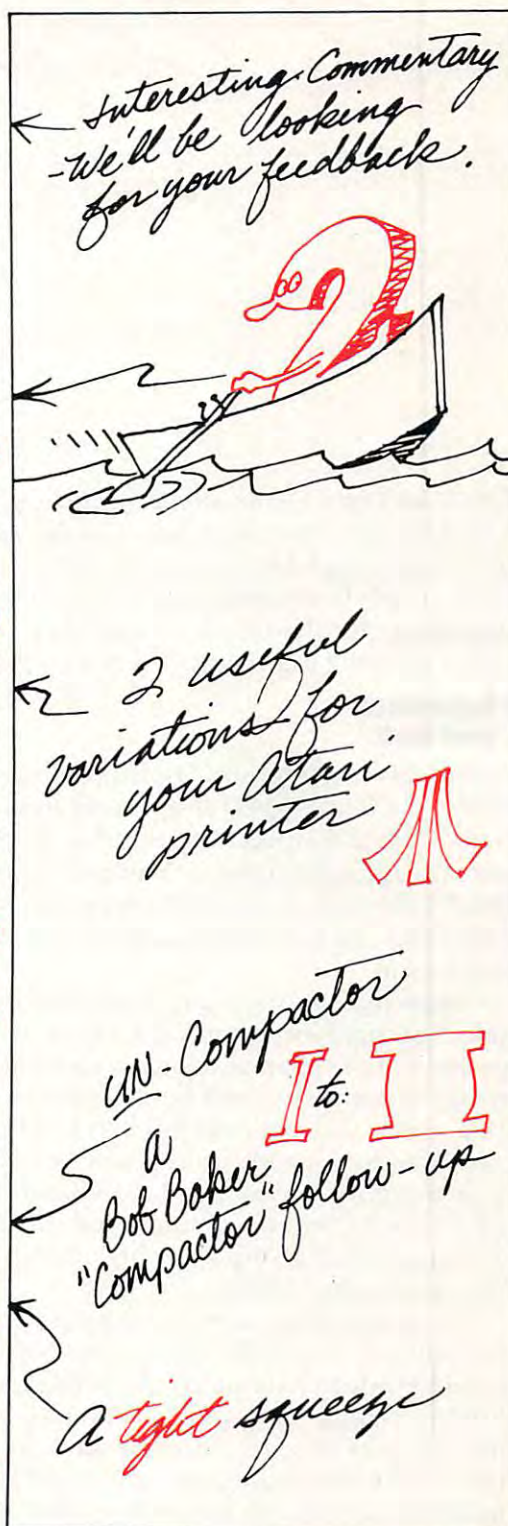 Interesting Commentary
-We'll be looking
for your feedback.
2 useful
variations for
your Atari
printer
UN-Compactor
I to: II
a
Bob Baker
"Compactor" follow-up
A tight squeeze